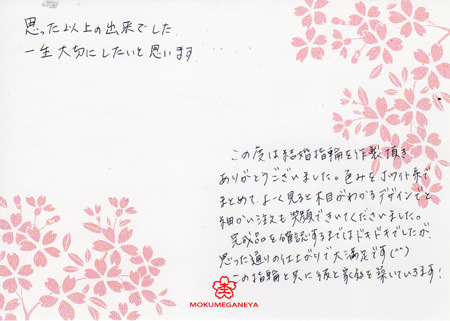 思った以上の出来でした
一生大切にしたいと思います
この度は結婚指輪を作製頂き
ありがとうございました。色みをホワイト系で
まとめて、よーく見ると木目がわかるデザインでと
細かい注文も笑顔できいてくださいました。
完成品を確認するまではドキドキでしたが、
思った通りの仕上がりで大満足です(^^)
この指輪と共に彼と家庭を築いていきます!
MOKUMEGANEYA